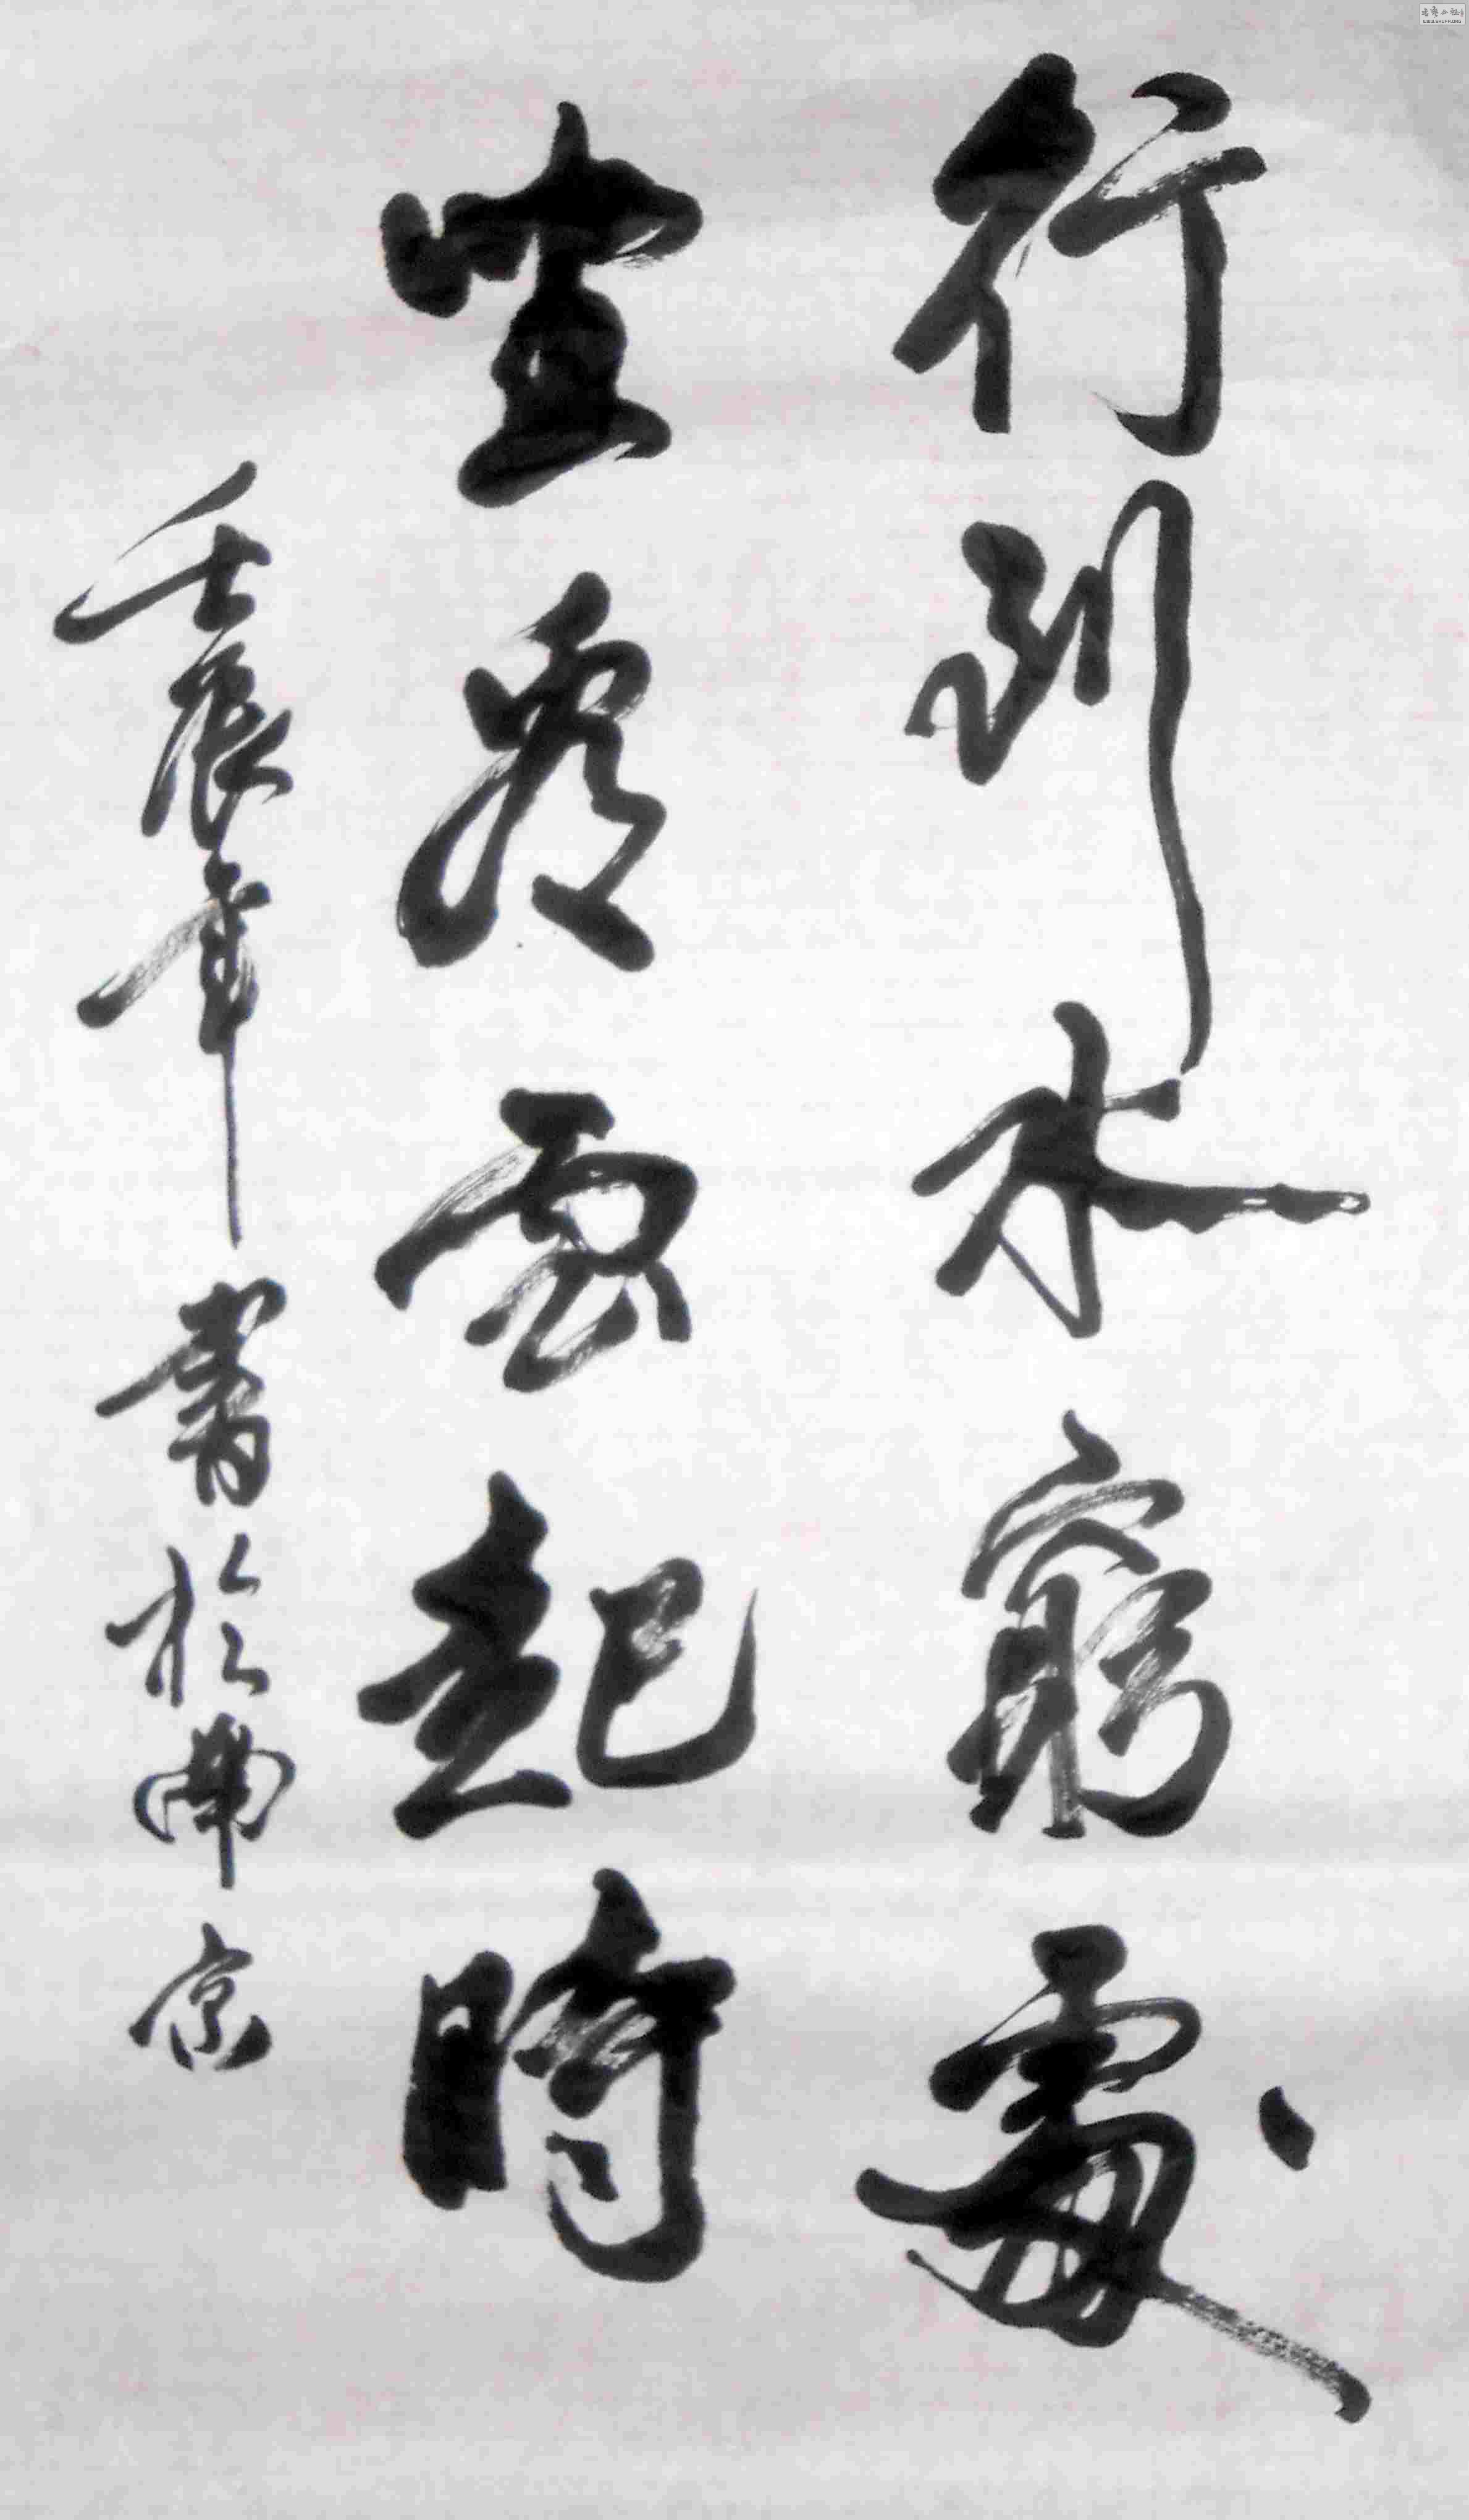 行到水窮處
坐看雲起時
壬辰年書於南京